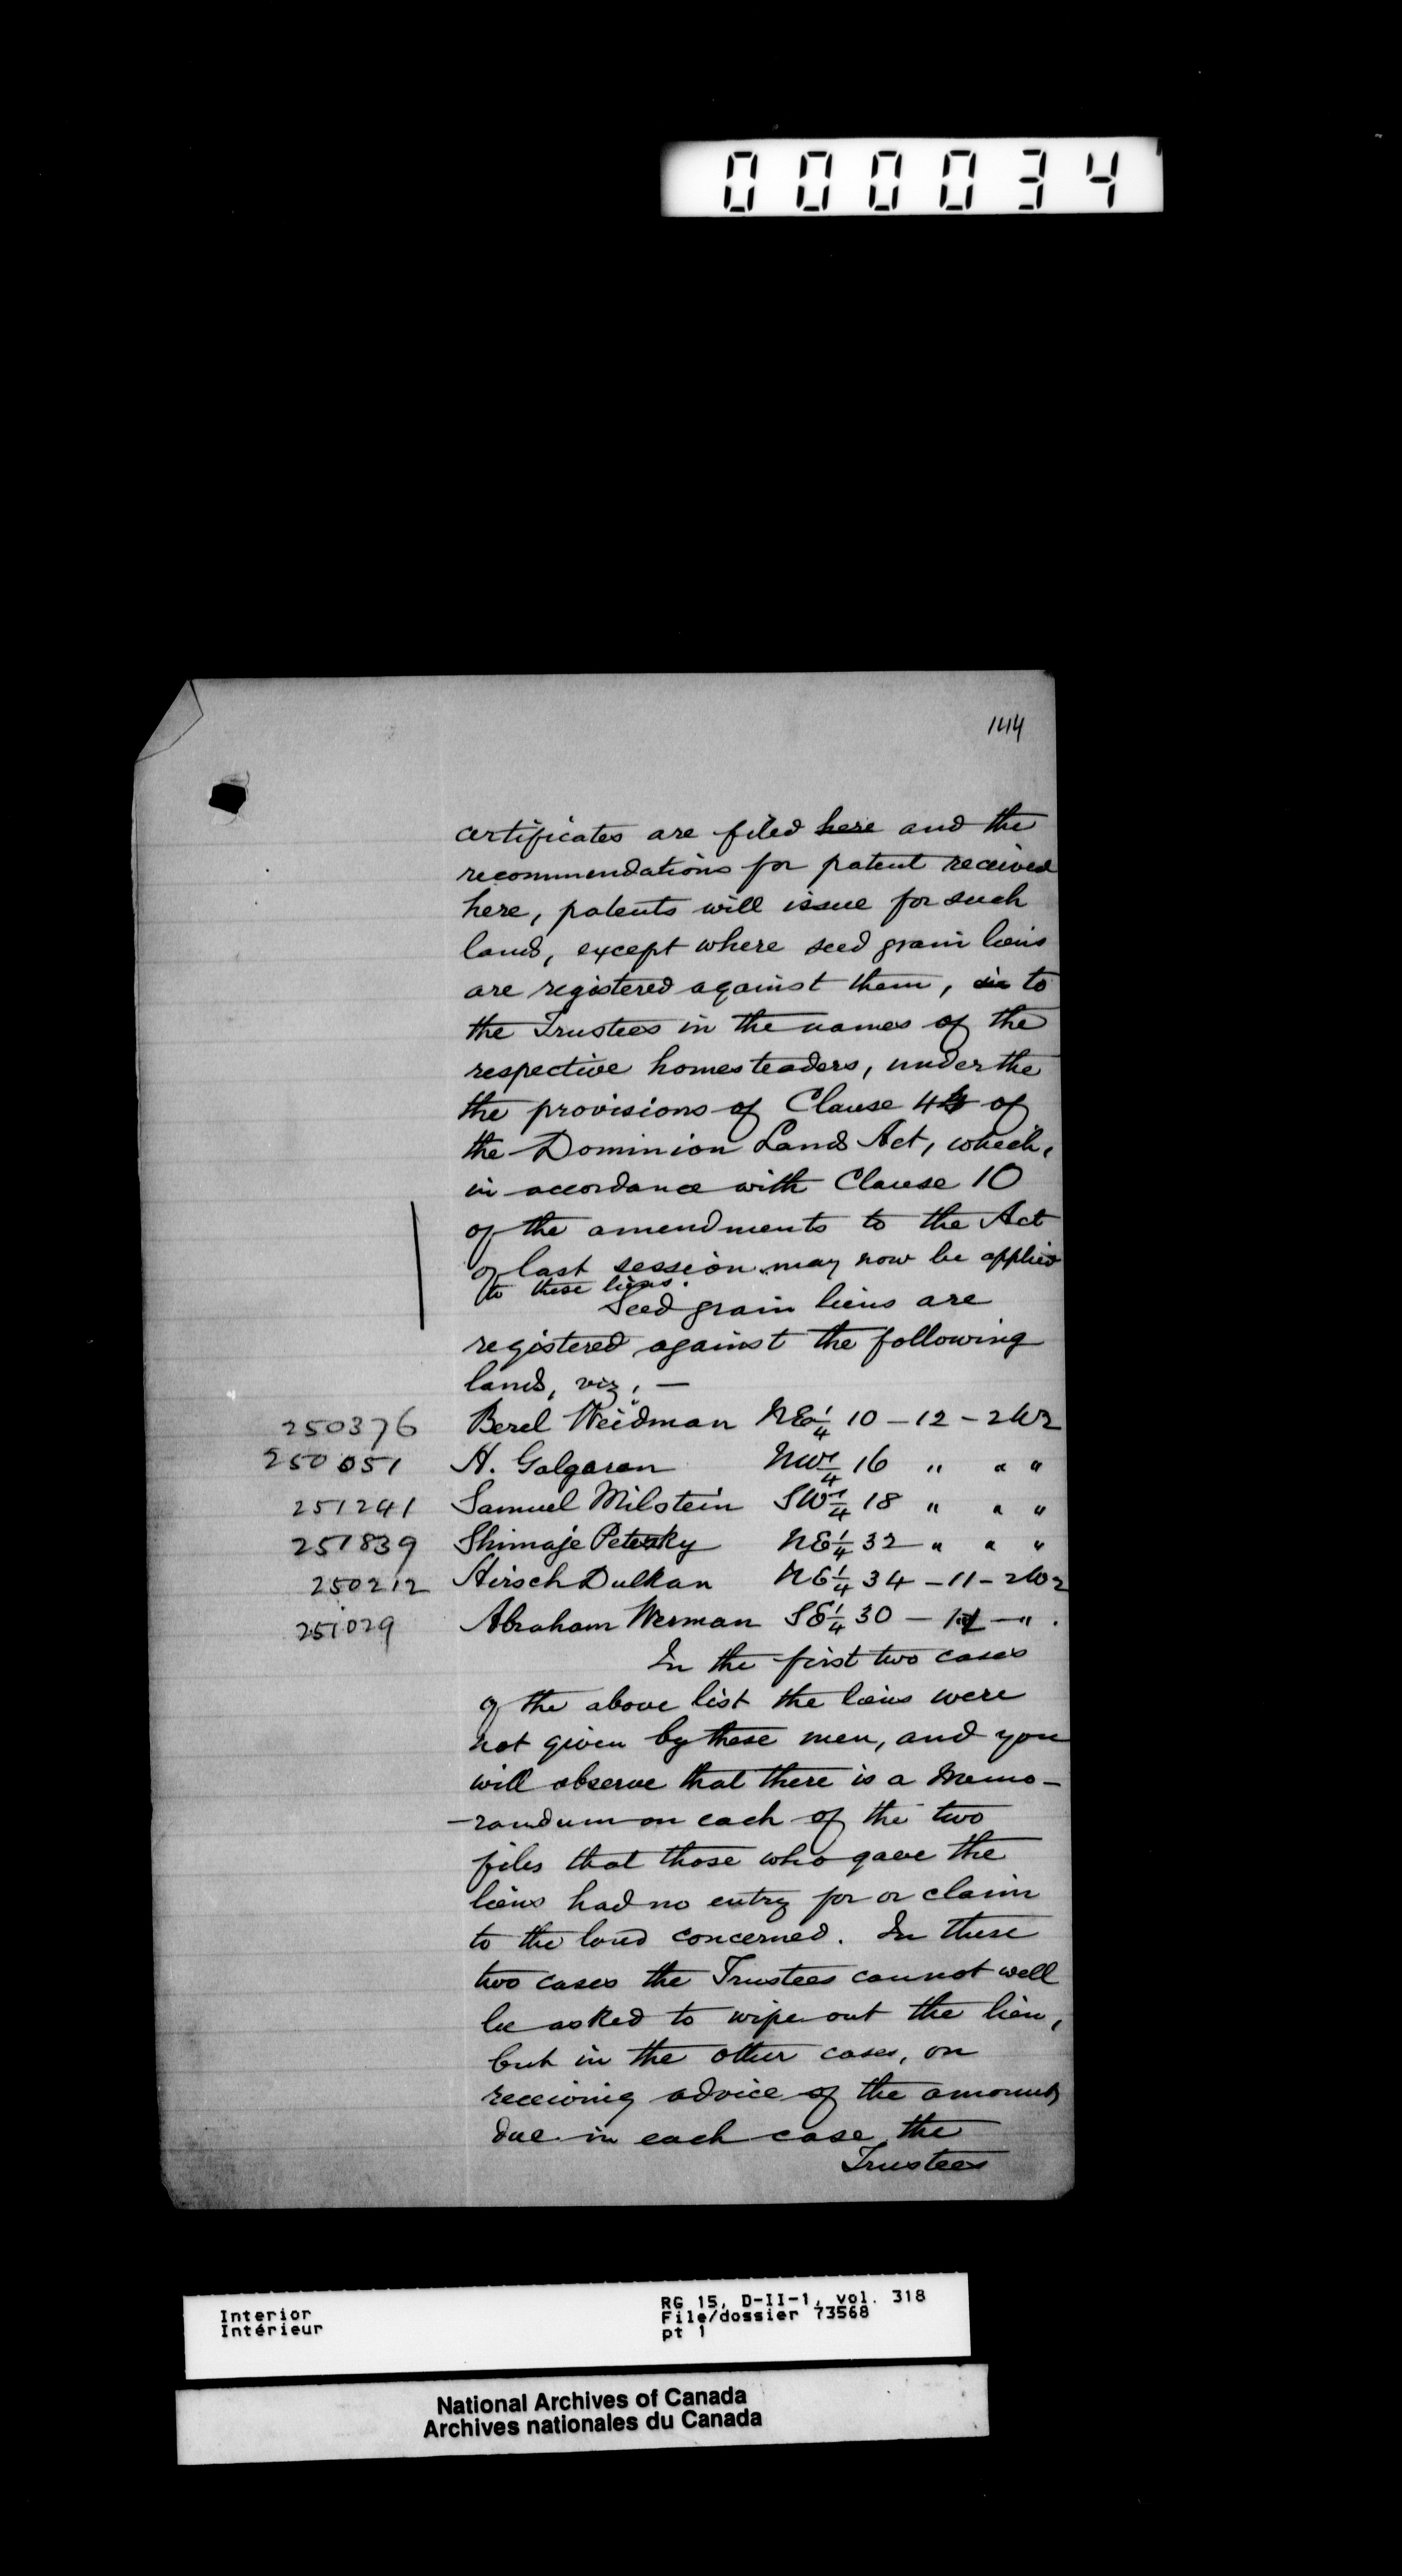 000034
144
certificates are filed here and the
recommendations for patent received
here, patents will issue for such
lands, except where seed grain liens
are registered against them, to
the Trustees in the names of the
respective homesteaders, under the
the provisions of Clause 44 of
the Dominion Lands Act, which,
in accordance with Clause 10
of the amendments to the Act
of last session may now be applied
to these liens.
Seed grain liens are
registered against the following
lands, viz, —
250376 Berel Weidman NE¼ 10 - 12 - 2W2
250051 H. Galgaran NW¼ 16 " " "
251241 Samuel Milstein SW¼ 18 " " "
251839 Shimaje Petersky NE¼ 32 " " "
250212 Hirsch Dulkan NE¼ 34 - 11 - 2W2
251029 Abraham Werman SE¼ 30 - - " .
In the first two cases
of the above list the liens were
not given by these men, and you
will observe that there is a memo-
-randum on each of the two
files that those who gave the
liens had no entry for or claim
to the land concerned. In these
two cases the Trustees cannot well
be asked to wipe out the lien,
but in the other cases, on
receiving advice of the amounts
due in each case the
Trustees
Interior
Intérieur
RG 15, D-II-1, vol. 318
File/dossier 73568
pt 1
National Archives of Canada
Archives nationales du Canada